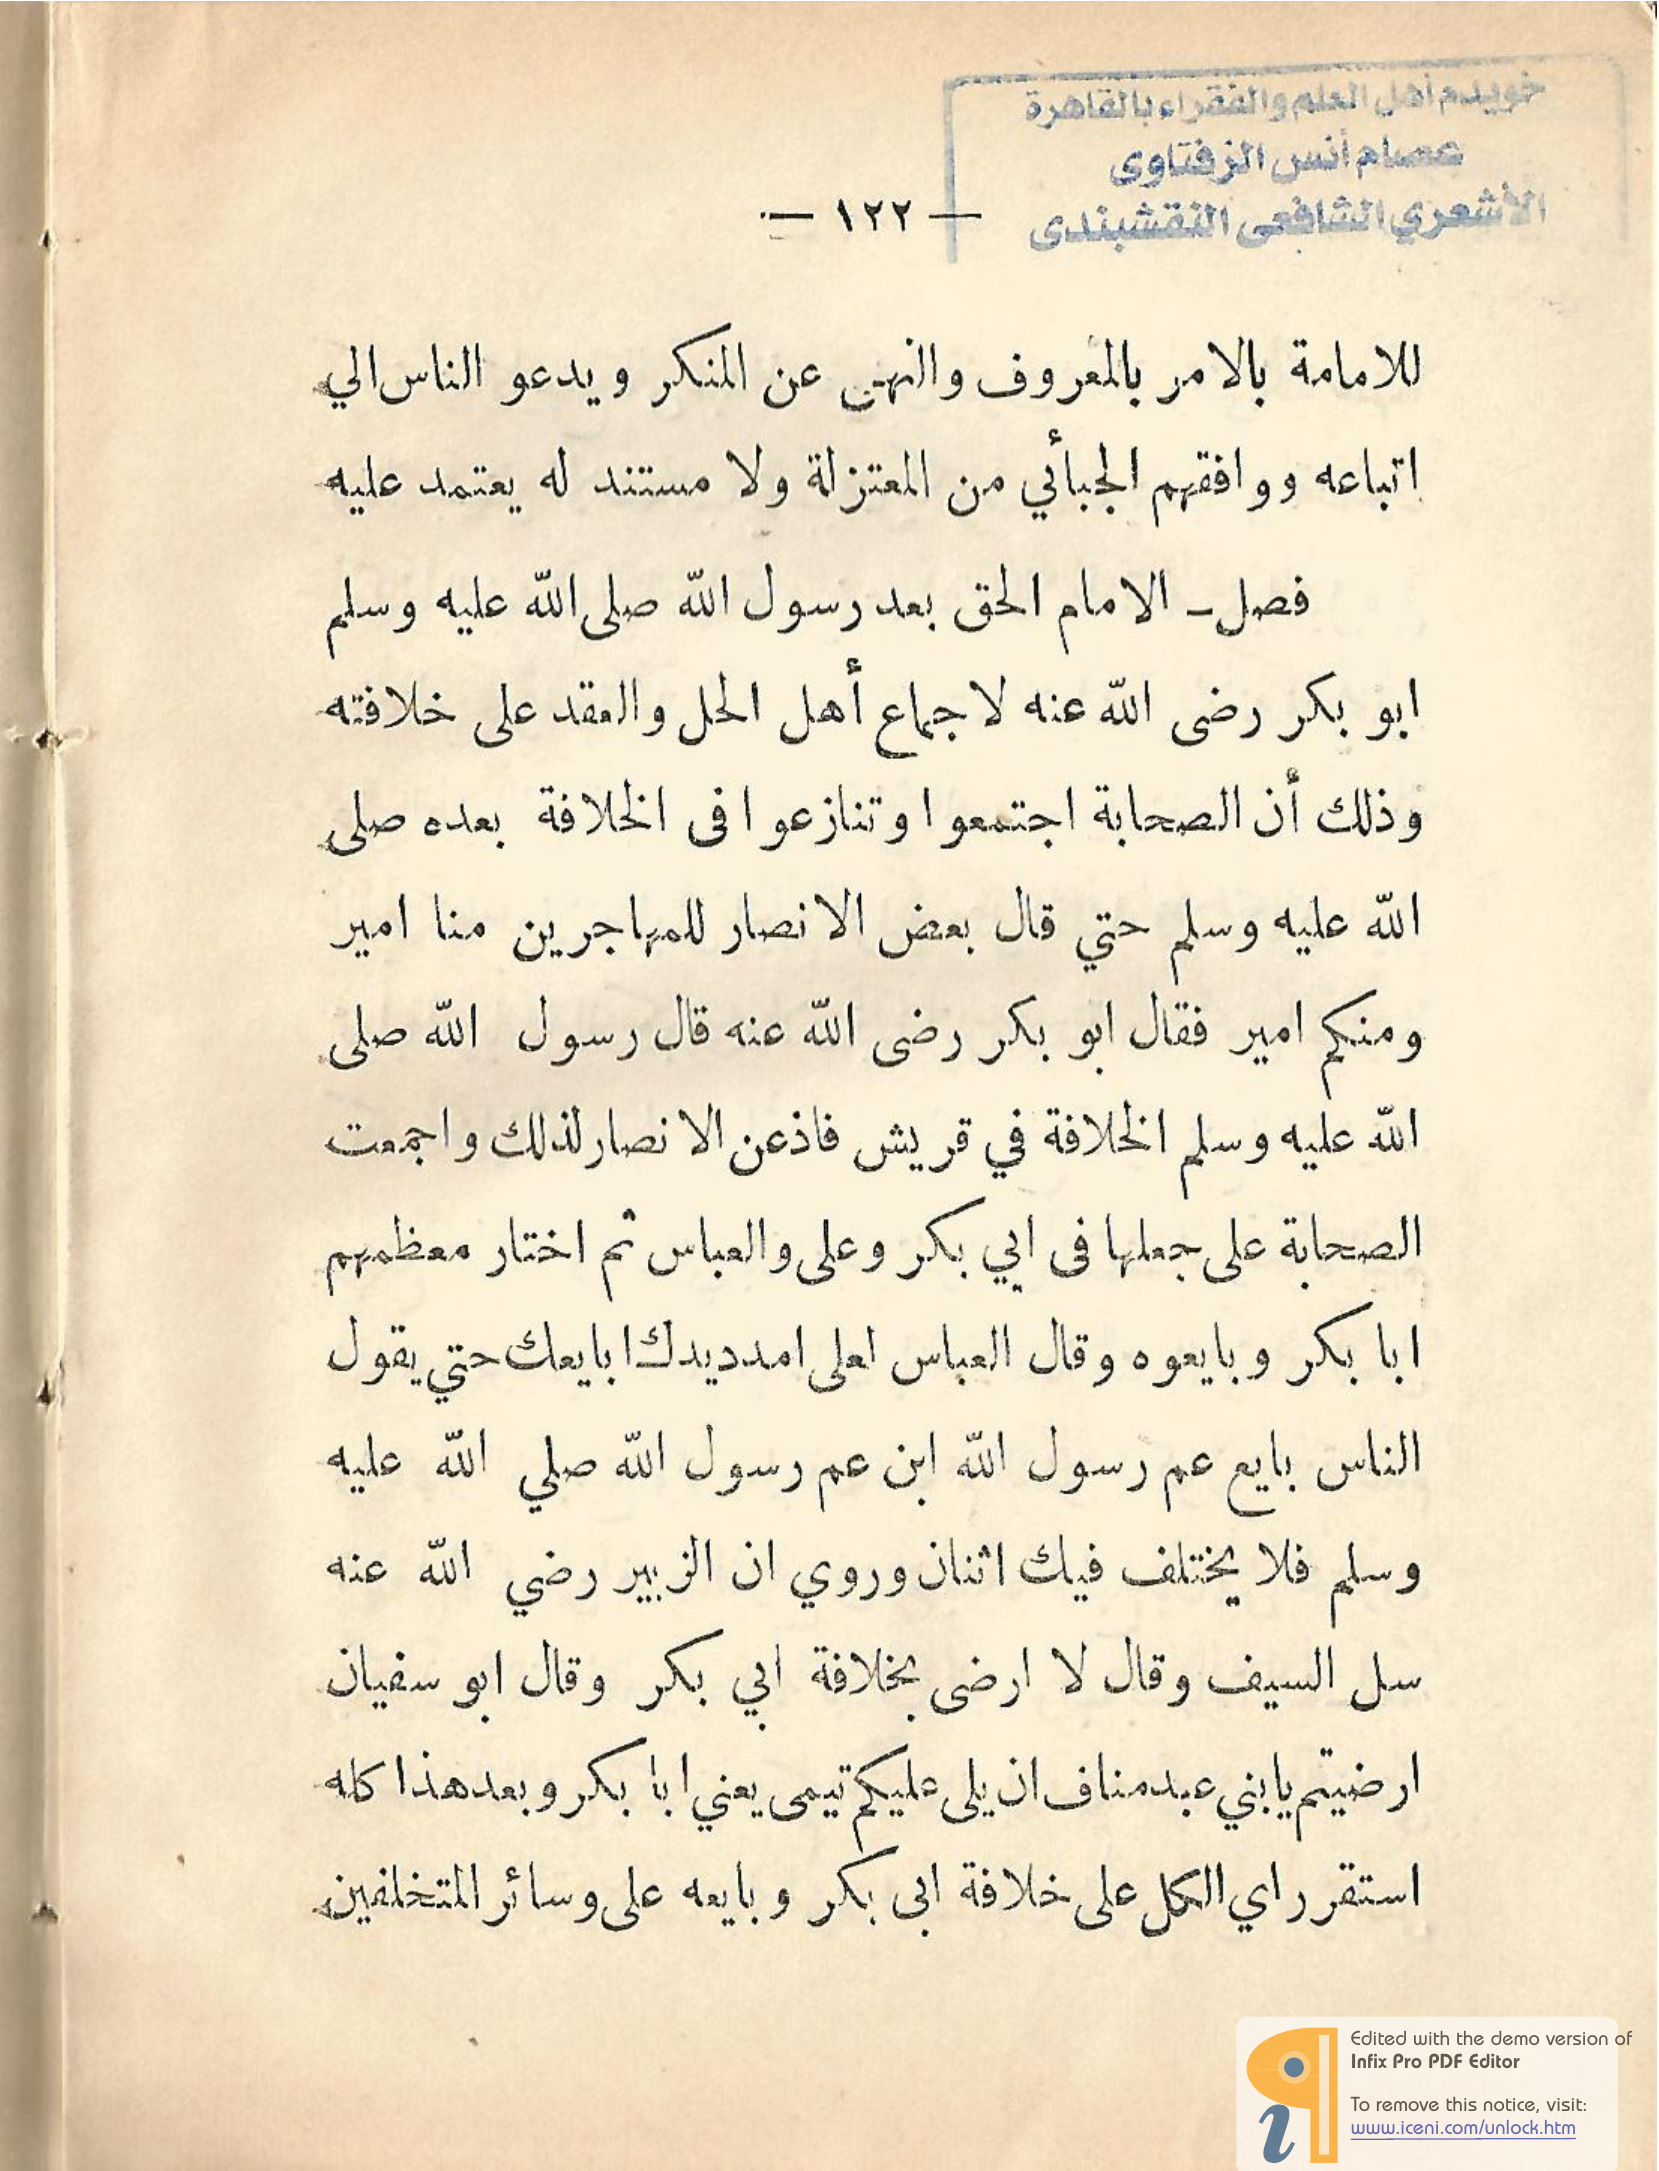 خويدم أهل العلم والفقراء بالقاهرة
عصام أنس الزفتاوى
الأشعري الشافعى النقشبندى
— ١٢٢ —
للامامة بالامر بالمعروف والنهى عن المنكر ويدعو الناس الي
اتباعه ووافقهم الجبأئي من المعتزلة ولا مستند له يعتمد عليه
فصل – الامام الحق بعد رسول الله صلى الله عليه وسلم
ابو بكر رضى الله عنه لاجماع أهل الحل والعقد على خلافته
وذلك أن الصحابة اجتمعوا وتنازعوا فى الخلافة بعده صلى
الله عليه وسلم حتي قال بعض الانصار للمهاجرين منا امير
ومنكم امير فقال ابو بكر رضى الله عنه قال رسول الله صلى
الله عليه وسلم الخلافة في قريش فاذعن الانصار لذلك واجمعت
الصحابة على جعلها فى ابي بكر وعلى والعباس ثم اختار معظمهم
ابا بكر وبايعوه وقال العباس لعلى امدد يدك ابايعك حتي يقول
الناس بايع عم رسول الله ابن عم رسول الله صلي الله عليه
وسلم فلا يختلف فيك اثنان وروي ان الزبير رضي الله عنه
سل السيف وقال لا ارضى بخلافة ابي بكر وقال ابو سفيان
ارضيتم يابني عبد مناف ان يلى عليكم تيمى يعني ابا بكر وبعد هذا كله
استقر راي الكل على خلافة ابى بكر وبايعه على وسائر المتخلفين
Edited with the demo version of
Infix Pro PDF Editor
To remove this notice, visit:
www.iceni.com/unlock.htm